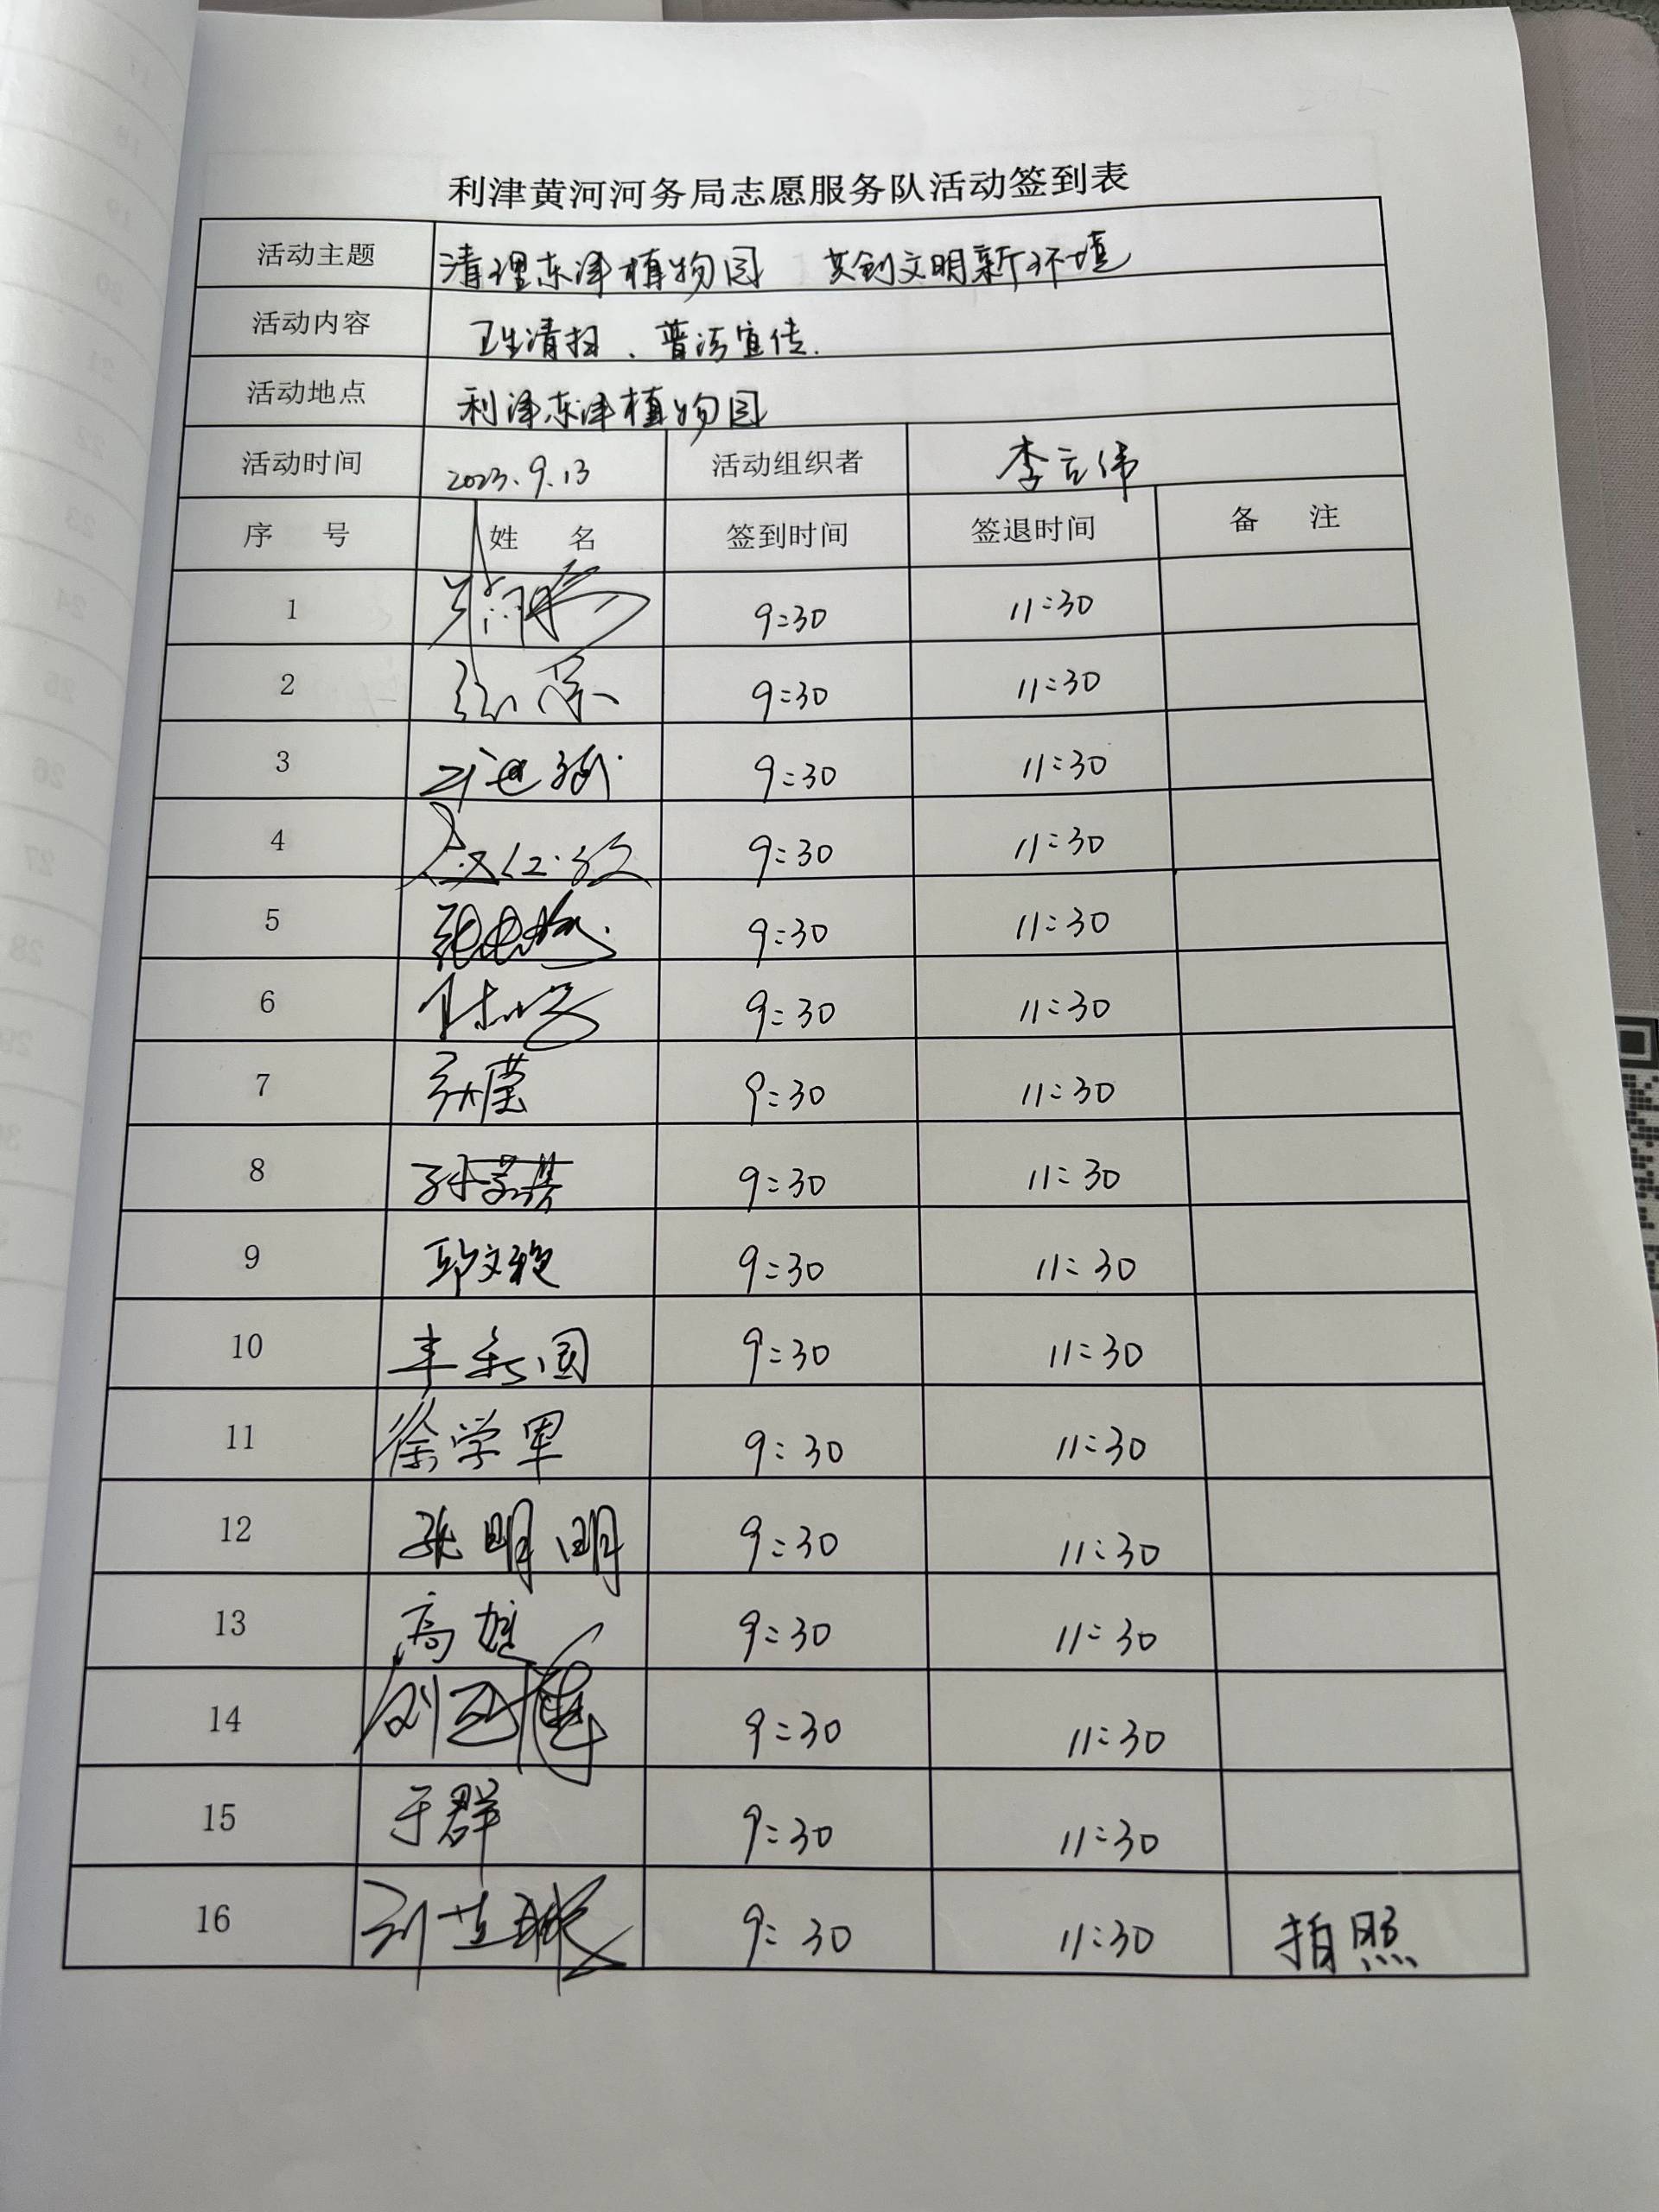 利津黄河河务局志愿服务队活动签到表
活动主题 清理东津植物园 共创文明新环境
活动内容 卫生清扫、普法宣传.
活动地点 利津东津植物园
活动时间 2023.9.13 活动组织者 李立伟
序 号 姓 名 签到时间 签退时间 备 注
1 9:30 11:30
2 9:30 11:30
3 9:30 11:30
4 9:30 11:30
5 9:30 11:30
6 9:30 11:30
7 9:30 11:30
8 9:30 11:30
9 9:30 11:30
10 9:30 11:30
11 徐学军 9:30 11:30
12 张明明 9:30 11:30
13 9:30 11:30
14 9:30 11:30
15 于群 9:30 11:30
16 9:30 11:30 拍照